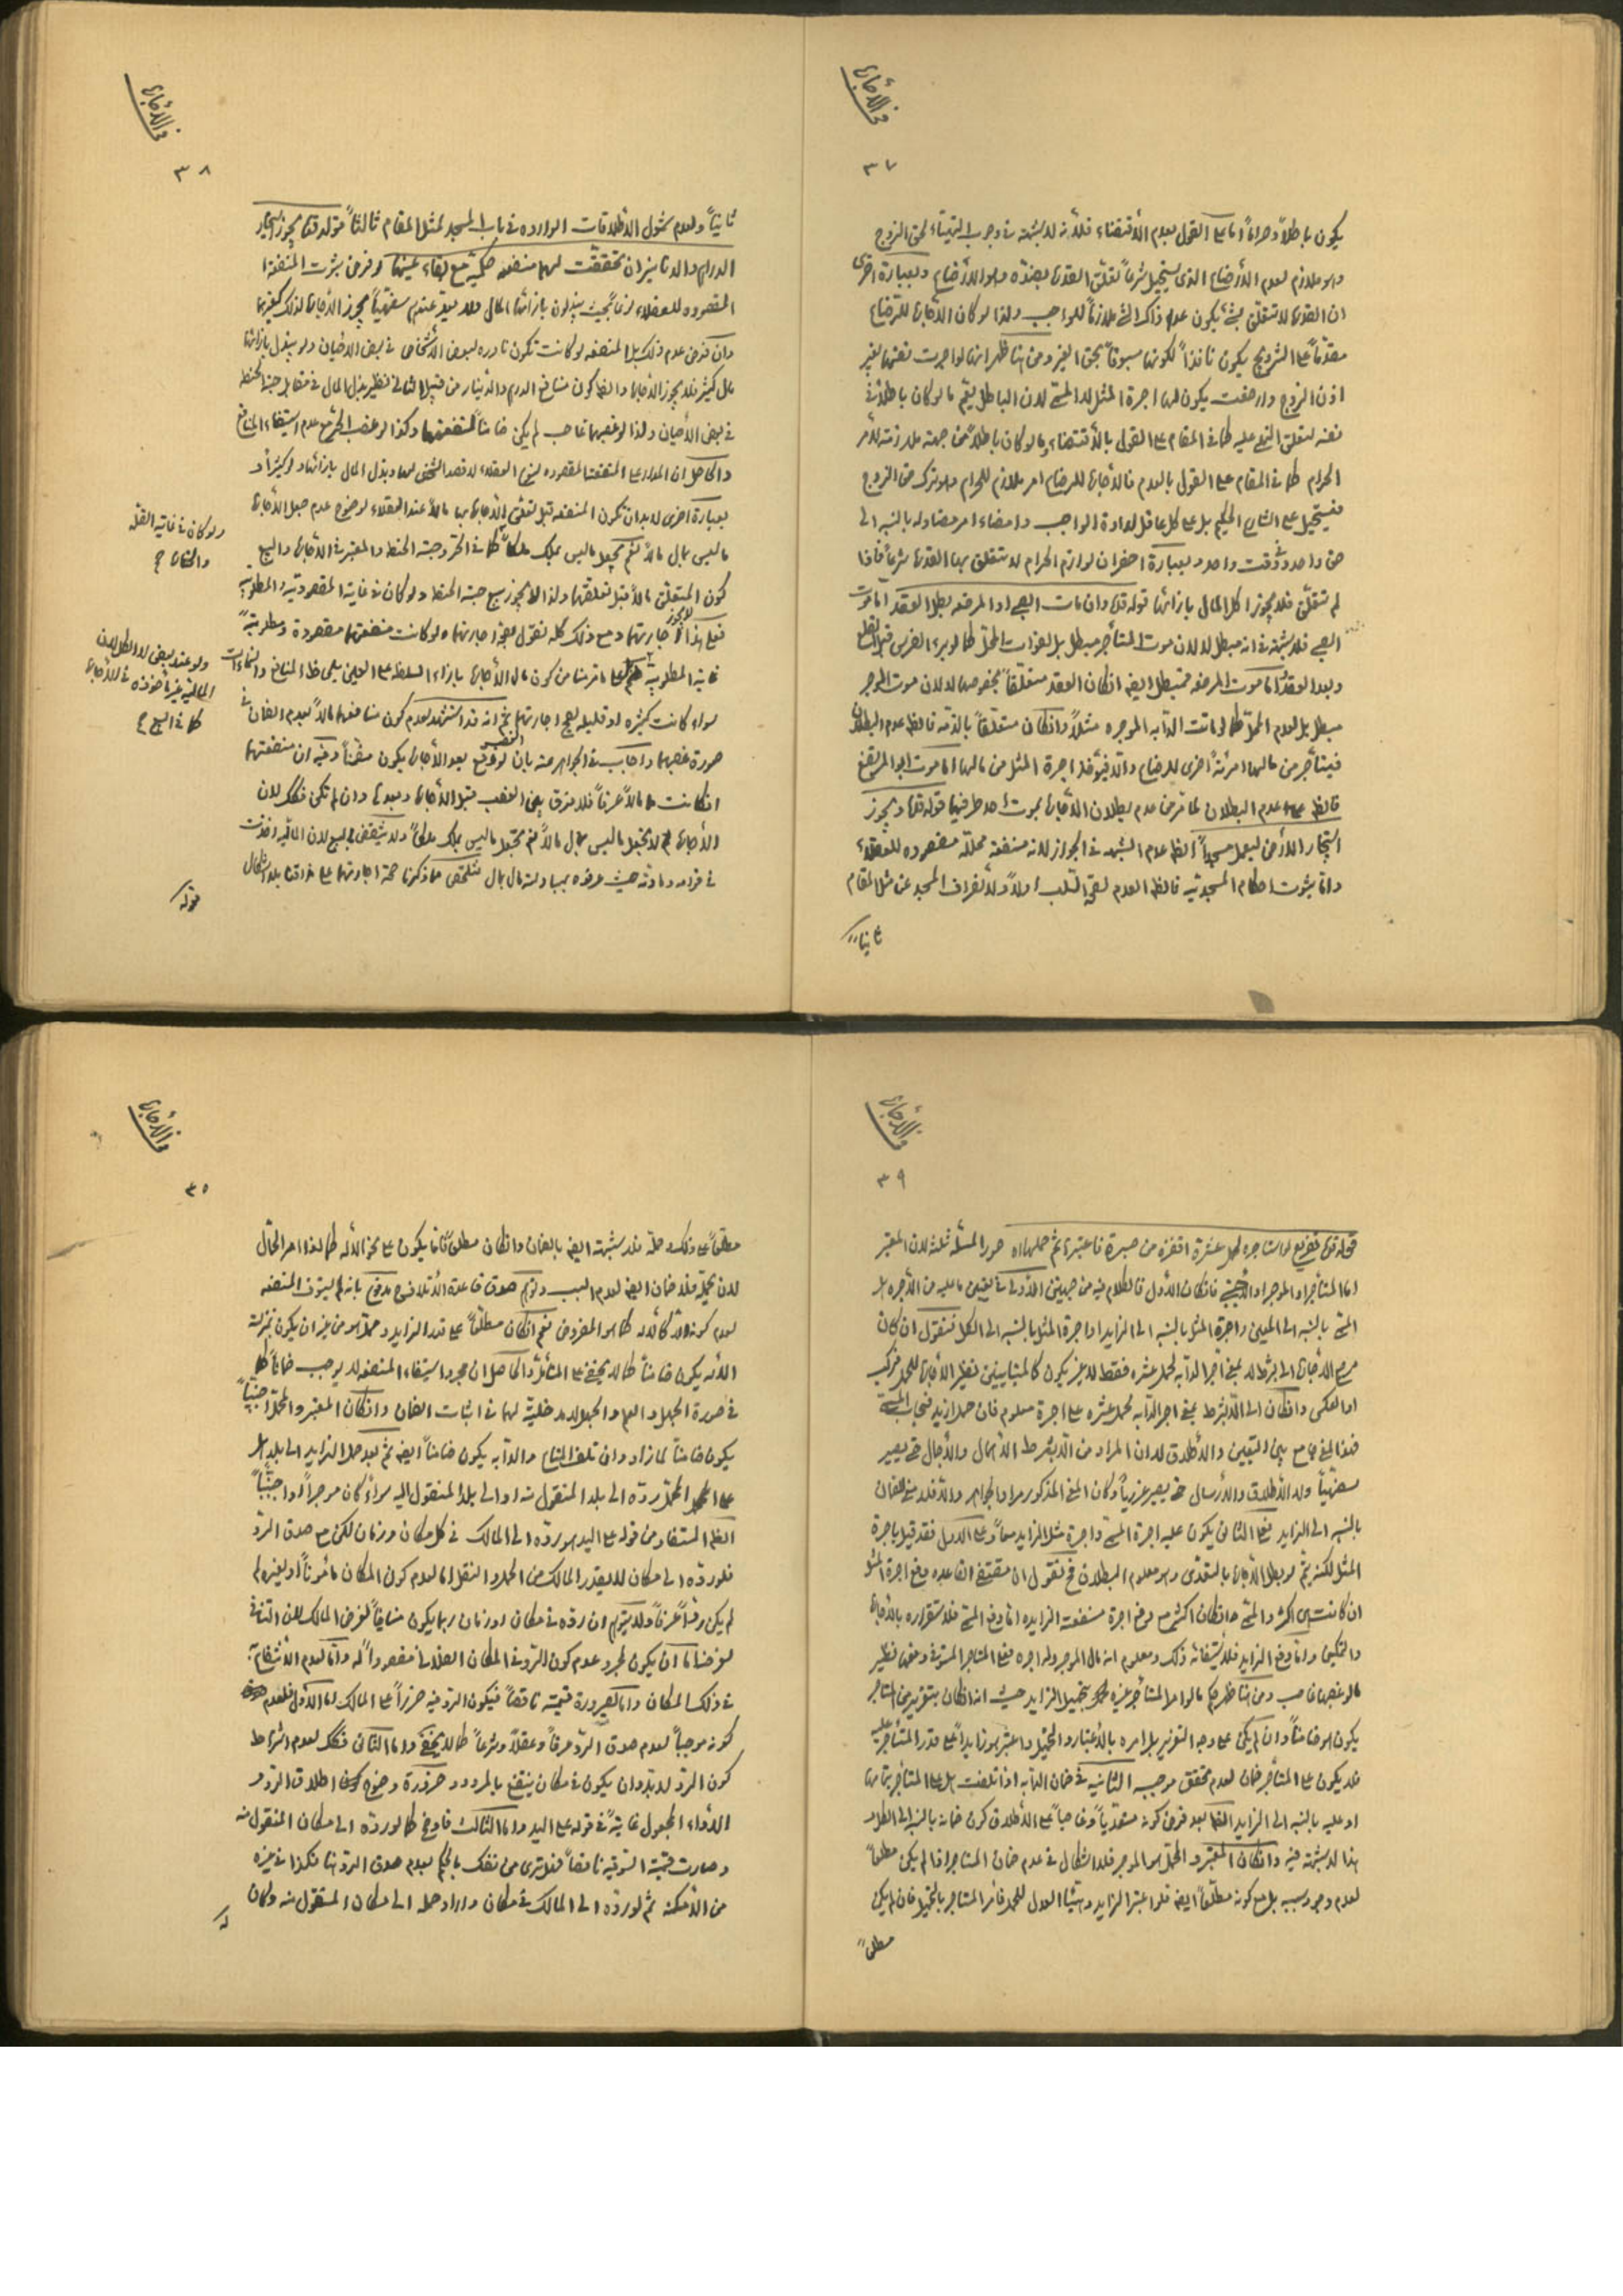 في الأجارة
٣٧
يكون باطلاً وحراماً اما على القول بعدم الأقتضاء فلأنه لا شبهة في وجوب التهيّاء لحق الزوج
وهو ملازم لعدم الأرضاع الذى يستحيل شرعاً تعلّق العقد بضدّه وهو الأرضاع وبعبارة اخرى
ان العقد لا يتعلق بشئ يكون عدم ذاك الشئ ملازماً للواجب ولذا لو كان الأجارة للرضاع
مقدّماً على التزويج يكون نافذاً لكونها مسبوقاً بحق الغير ومن هنا ظهر انها لو اجرت نفسها بغير
اذن الزوج وارضعت يكون لها اجرة المثل لا المسمى لان الباطل يعم ما لو كان باطلاً في
نفسه لتعلق النهى عليه كما في المقام على القول بالأقتضاء وما لو كان باطلاً من جهة ملازمته لأمر
الحرام كما في المقام على القول بالعدم فالأجارة للرضاع امر ملازم للحرام وهو ترك حق الزوج
فيستحيل على الشارع الحكيم بل على كل عاقل ارادة الواجب وامضاء امر مضاد له بالنسبة الى
حق واحد في وقت واحد وبعبارة اخرى ان لوازم الحرام لا يتعلق بها العقد شرعاً فاذا
لم تتعلق فلا يجوز اكل المال بازائها قوله قده وان مات الصبى او المرضعه بطل العقد اما موت
الصبى فلا شبهة في انه مبطل لا لان موت المستأجر مبطل بل لفوات المحلّ كما لو برء الضرس قبل القلع
وبعد العقد واما موت المرضعه فمبطل ايضاً ان كان العقد متعلّقاً بخصوصها لا لان موت الموجر
مبطل بل لعدم المحلّ كما لو ماتت الدابه الموجره مثلاً وان كان متعلّقاً بالذمّه فالظ عدم البطلان
فيستأجر من مالها امرئة اخرى للرضاع والاّ فيؤخذ اجرة المثل من مالها اما موت ابو المرتضع
فالظ عدم البطلان لما مرّ من عدم بطلان الأجارة بموت احد طرفيها قوله قده ويجوز
استيجار الأرض ليعمل مسجداً الظ عدم الشبهه في الجواز لانه منفعة محلله مقصوده للعقلاء
واما ثبوت احكام المسجديّه فالظ العدم لصحّة السّلب اولاً ولأنصراف المسجد عن مثل المقام
ثانياً
في الأجارة
٣٨
ثانياً ولعدم شمول الأطلاقات الوارده في باب المسجد لمثل المقام ثالثاً قوله قده يجوز استيجار
الدراهم والدنانير ان تحققت لهما منفعه حكميّة مع بقاء عينهما لو فرض ثبوت المنفعة
المقصوده للعقلاء نوعاً بحيث يبذلون بازائها المال ولا يعدّ عندهم سفهيّاً يجوز الأجارة لذلك كغيرها
وان فرض عدم ذلك بل المنفعه لو كانت تكون نادره لبعض الأشخاص في بعض الأحيان ولو ببذل بازائها
مال كثير فلا يجوز الأجارة والظ كون منافع الدرهم والدينار من قبيل الثانى نظير بذل المال في مقابل حبة الحنطه
في بعض الأحيان ولذا لو غصبها غاصب لم يكن ضامناً لمنفعتهما وكذا لو غصب الحرّ مع عدم استيفاء المنافع
والحاصل ان المدار على المنفعة المقصوده لنوع العقلاء لا قصد الشخص لها وبذل المال بازائها ولو كثيراً و
بعبارة اخرى لا بد ان تكون المنفعه قبل تعلّق الأجارة بها مالاً عند العقلاء لوضوح عدم جعل الأجارة
ما ليس بمال مالاً نعم يجعل ما ليس بملك ملكاً كما في الحرّ وحبة الحنطه والمعتبر في الأجارة والبيع
كون المتعلق مالاً قبل تعلقهما ولذا لا يجوز بيع حبة الحنطه ولو كان في غاية المقصوديّه والمطلوبيّه
فعلى هذا لا يجوز اجارتهما ومع ذلك كله نقول بجواز اجارتهما ولو كانت منفعتهما مقصودة ومطلوبيّةً
غاية المطلوبيّه على ما قرّبنا من كون مال الأجارة بازاء السلطه على العين بلحاظ المنافع والنماءات
سواء كانت كثيره او قليله يصح اجارتهما ثم انه قد استشهد لعدم كون منافعهما مالاً بعدم الضمان في
صورة غصبهما واجاب في الجواهر عنه بان لو وقع الغصب بعد الأجارة يكون مضمناً وفيه ان منفعتهما
ان كانت مالاً عرفاً فلا فرق بين الغصب قبل الأجارة وبعدها وان لم تكن فكك لان
الأجارة لا تجعل ما ليس بمال مالاً نعم تجعل ما ليس بملك ملكاً ولا ينتقض بالبيع لان الماليّه اخذت
في قوامه وماذته حيث عرفوه بمبادلة مال بمال فتلخّص مما ذكرنا صحة اجارتهما على مذاقنا بلا اشكال
قوله
ولو كان في غاية القلّه
والحقارة ح
ولو عند بعض لا الكل لان
الماليّه غير مأخوذه في الأجارة
كما في البيع ح
في الأجارة
٣٩
قوله قده تفريع لو استأجره لحمل عشرة اقفزه من صبرة فاعتبرها ثم حملها اه صور المسئلة ثلثة لان المعتبر
اما المستأجر او الموجر او الأجنبى فان كان الأول فالكلام فيه من جهتين الأولى في تعيين ما عليه من الأجره هل
المسمى بالنسبه الى المعيّن واجرة المثل بالنسبه الى الزايد او اجرة المثل بالنسبه الى الكل فنقول ان كان
مرجع الأجارة الى بشرط لا يعنى آجر الدابه لحمل عشره فقط لا غير يكون كالمتباينين نظير الأجارة للحمل فركب
او بالعكس وان كان الى اللا بشرط يعنى اجر الدابه لحمل عشره على اجرة معلوم فان حمل ازيد فبحساب المسمى
فهذا المعنى جامع بين التعيين والأطلاق لا ان المراد من اللا بشرط الأهمال والأجمال حتى يصير
سفهيّاً ولا الأطلاق والأرسال حتى يصير غررياً وكان المعنى المذكور مراد الجواهر والاّ فلا معنى للضمان
بالنسبه الى الزايد فعلى الثانى يكون عليه اجرة المسمى واجرة مثل الزايد معاً وعلى الاول فقد قيل باجرة
المثل لكنه يتم لو بطل الأجارة بالتعدّى وهو معلوم البطلان فح نقول ان مقتضى القاعده دفع اجرة المثل
ان كانت هى اكثر والمسمى ان كان اكثر مع دفع اجرة منفعة الزايده اما دفع المسمى فلاستقراره بالأجارة
والتمكين واما دفع الزايد فلاستيفائه ذلك ومعلوم انه مال الموجر وله اجره فعلى المستاجر المستوفى دفعها نظير
ما لو غصبها غاصب ومن هنا ظهر حكم ما لو امر المستأجر غيره بتحميل الزايد حيث انه ان كان بتغرير من المستاجر
يكون هو ضامناً وان لم يكن على وجه التغرير بل امره بالأعتبار والحمل واعتبر هو زايداً على قدر المستأجر عليه
فلا يكون على المستأجر ضمان لعدم تحقق موجبه الثانيه في ضمان الدابه اذا تلفت هل على المستأجر بتمامها
او عليه بالنسبه الى الزايد الظ بعد فرض كونه متعدّياً وغاصباً على الأطلاق كون ضمانه بالنسبه الى الكل
هذا لا شبهة فيه وان كان المعتبر والحمل هو الموجر فلا اشكال في عدم ضمان المستاجر اذا لم يكن مطلعاً
لعدم وجود سببه بل مع كونه مطلعاً ايضاً فلو اعتبر الزايد وهيّأ العدل للحمل فأمر المستاجر بالتحميل فان لم يكن
مطلعاً
في الأجارة
٤٠
مطلعاً على ذلك وحمله فلا شبهة ايضاً بالضمان وان كان مطلعاً فاما يكون على نحو الأله كما لو امر الحمّال
لان يحمله فلا ضمان ايضاً لعدم السبب وتوهم صدق قاعدة الأتلاف مدفوع بانه لم يستوف المنفعه
لعدم كونه الاّ كالأله كما هو المفروض نعم ان كان مطلعاً على قدر الزايد وحمله هو من غير ان يكون بمنزلة
الأله يكون ضامناً كما لا يخفى على المتأمل والحاصل ان مجرد استيفاء المنفعه لا يوجب ضماناً كما
في صورة الجهل والعلم والجهل لا مدخلية لهما في اثبات الضمان وان كان المعتبر والمحمّل اجنبيّاً
يكون ضامناً لما زاد وان تلف المتاع والدابه يكون ضامناً ايضاً ثم بعد حمل الزايد الى بلد هل
على المحمّل ردّه الى بلد المنقول منه او الى بلد المنقول اليه سواء كان موجراً او اجنبيّاً
الظ المستفاد من قوله على اليد هو ردّه الى المالك في كل مكان وزمان لكن مع صدق الردّ
فلو ردّه الى مكان لا يقدر المالك من الحمل والنقل اما لعدم كون المكان مأموناً او لغيره لم
يكن ردّاً عرفاً ولا يتوهم ان ردّه في مكان او زمان ربما يكون منافياً لغرض المالك لان التنافى
لغرضه اما ان يكون لمجرد عدم كون الردّ في المكان الفلانى مقصوداً له واما لعدم الأنتفاع به
في ذلك المكان واما لصيرورة قيمته ناقصاً فيكون الردّ فيه ضرراً على المالك اما الأول فلعدم
كونه موجباً لعدم صدق الردّ عرفاً وعقلاً وشرعاً كما لا يخفى واما الثانى فكك لعدم اشتراط
كون الردّ لا بدّ وان يكون في مكان ينتفع بالمردود ضرورة وضوح اطلاق الردّ و
الأداء المجعول غايةً في قوله على اليد واما الثالث فاوضح كما لو ردّه الى مكان المنقول منه
وصارت قيمته السوقيه ناقصاً فهل ترى من نفسك بالحكم بعدم صدق الردّ هنا فكذا في غيره
من الأمكنه ثم لو ردّه الى المالك في مكان واراد حمله الى مكان المنقول منه وكان
له